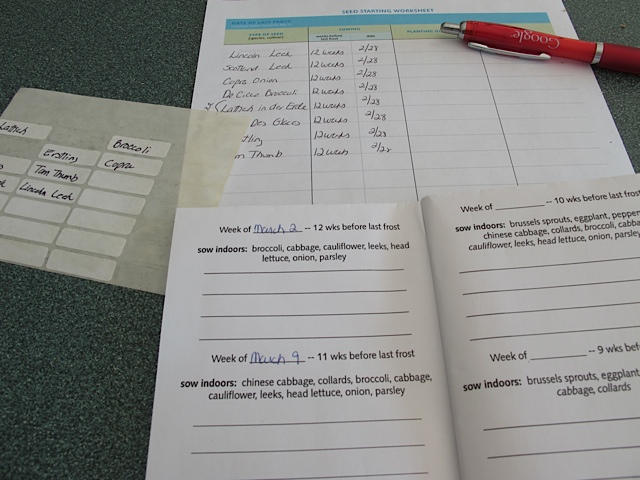 SEED STARTING WORKSHEET
DATE OF LAST FROST:
TYPE OF SEED
(species, cultivar)
SOWING
weeks before last frost
date
PLANTING
Lincoln Leek 12 weeks 2/28
Scotland Leek 12 weeks 2/28
Copra Onion 12 weeks 2/28
De Cicco Broccoli 12 weeks 2/28
Lattich in der Erde 12 weeks 2/28
Des Glaces 12 weeks 2/28
12 weeks 2/28
Thumb 12 weeks 2/28
Google
Lattich
Erstling
Broccoli
Tom Thumb
Copra
Lincoln Leek
Week of March 2 -- 12 wks before last frost
sow indoors: broccoli, cabbage, cauliflower, leeks, head
lettuce, onion, parsley
Week of March 9 -- 11 wks before last frost
sow indoors: chinese cabbage, collards, broccoli, cabbage,
cauliflower, leeks, head lettuce, onion, parsley
Week of ________ -- 10 wks before last frost
sow indoors: brussels sprouts, eggplant, pepper
chinese cabbage, collards, broccoli, cabba
cauliflower, leeks, head lettuce, onion, parsley
Week of ________ -- 9 wks before last
sow indoors: brussels sprouts, eggplant
cabbage, collards